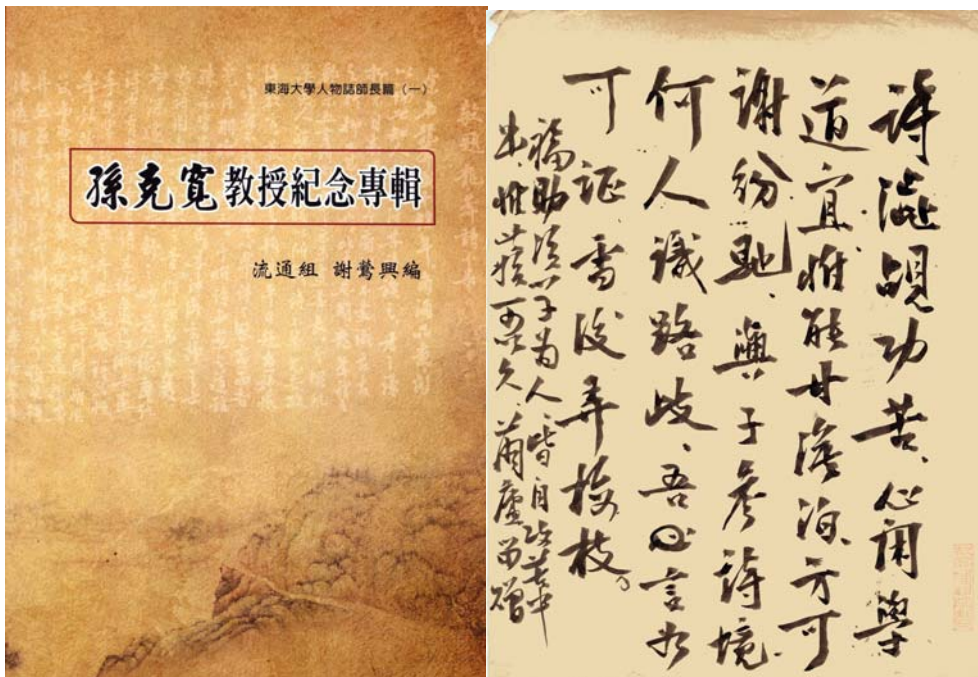 東海大學人物誌師長篇（一）
孫克寬教授紀念專輯
流通組 謝鶯興編
詩澁覘功苦、心閑學
道宜惟能甘澹泊、方可
謝紛馳、與子參詩境、
何人識路歧、吾言如
可証雪後弄梅枝。
福助子為人、皆自苦中
出惟可久、繭廬留贈